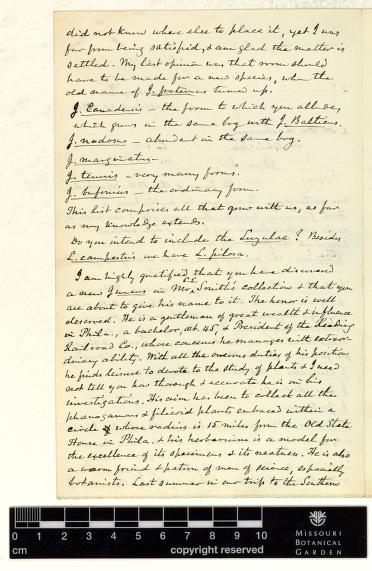 did not know where else to place it, yet I was
far from being satisfied, & am glad the matter is
settled. My last opinion was that room should
have to be made for a new species, when the
old name of J. pretermis turned up.
J. Canadensis – the form to which you allude,
which grows in the same bog with J. Balticus.
J. nodosus – abundant in the same bog.
J. marginatus –
J. tenuis – very many forms.
J. bufonius – the ordinary form.
This list comprises all that grow with us, as far
as my knowledge extends.
Do you intend to include the Luzulae? Besides
L. campestris we have L. pilosa.
I am highly gratified that you have discovered
a new Juncus in Mr. C.E. Smith's collection & that you
are about to give his name to it. The honor is well
deserved. He is a gentleman of great wealth & influence
in Phila., a bachelor, æt. 45, & President of the Reading
Railroad Co., whose concerns he manages with extraor-
dinary ability. With all the onerous duties of his position
he finds leisure to devote to the study of plants & I need
not tell you how thorough & accurate he is in his
investigations. His aim has been to collect all the
phænogamous & filicoid plants embraced within a
circle whose radius is 15 miles from the Old State
House in Phila. & his herbarium is a model for
the excellence of its specimens & its neatness. He is also
a warm friend & patron of men of science, especially
botanists. Last summer in our trip to the Southern
0 1 2 3 4 5 6 7 8 9 10
cm
copyright reserved
MISSOURI
BOTANICAL
GARDEN